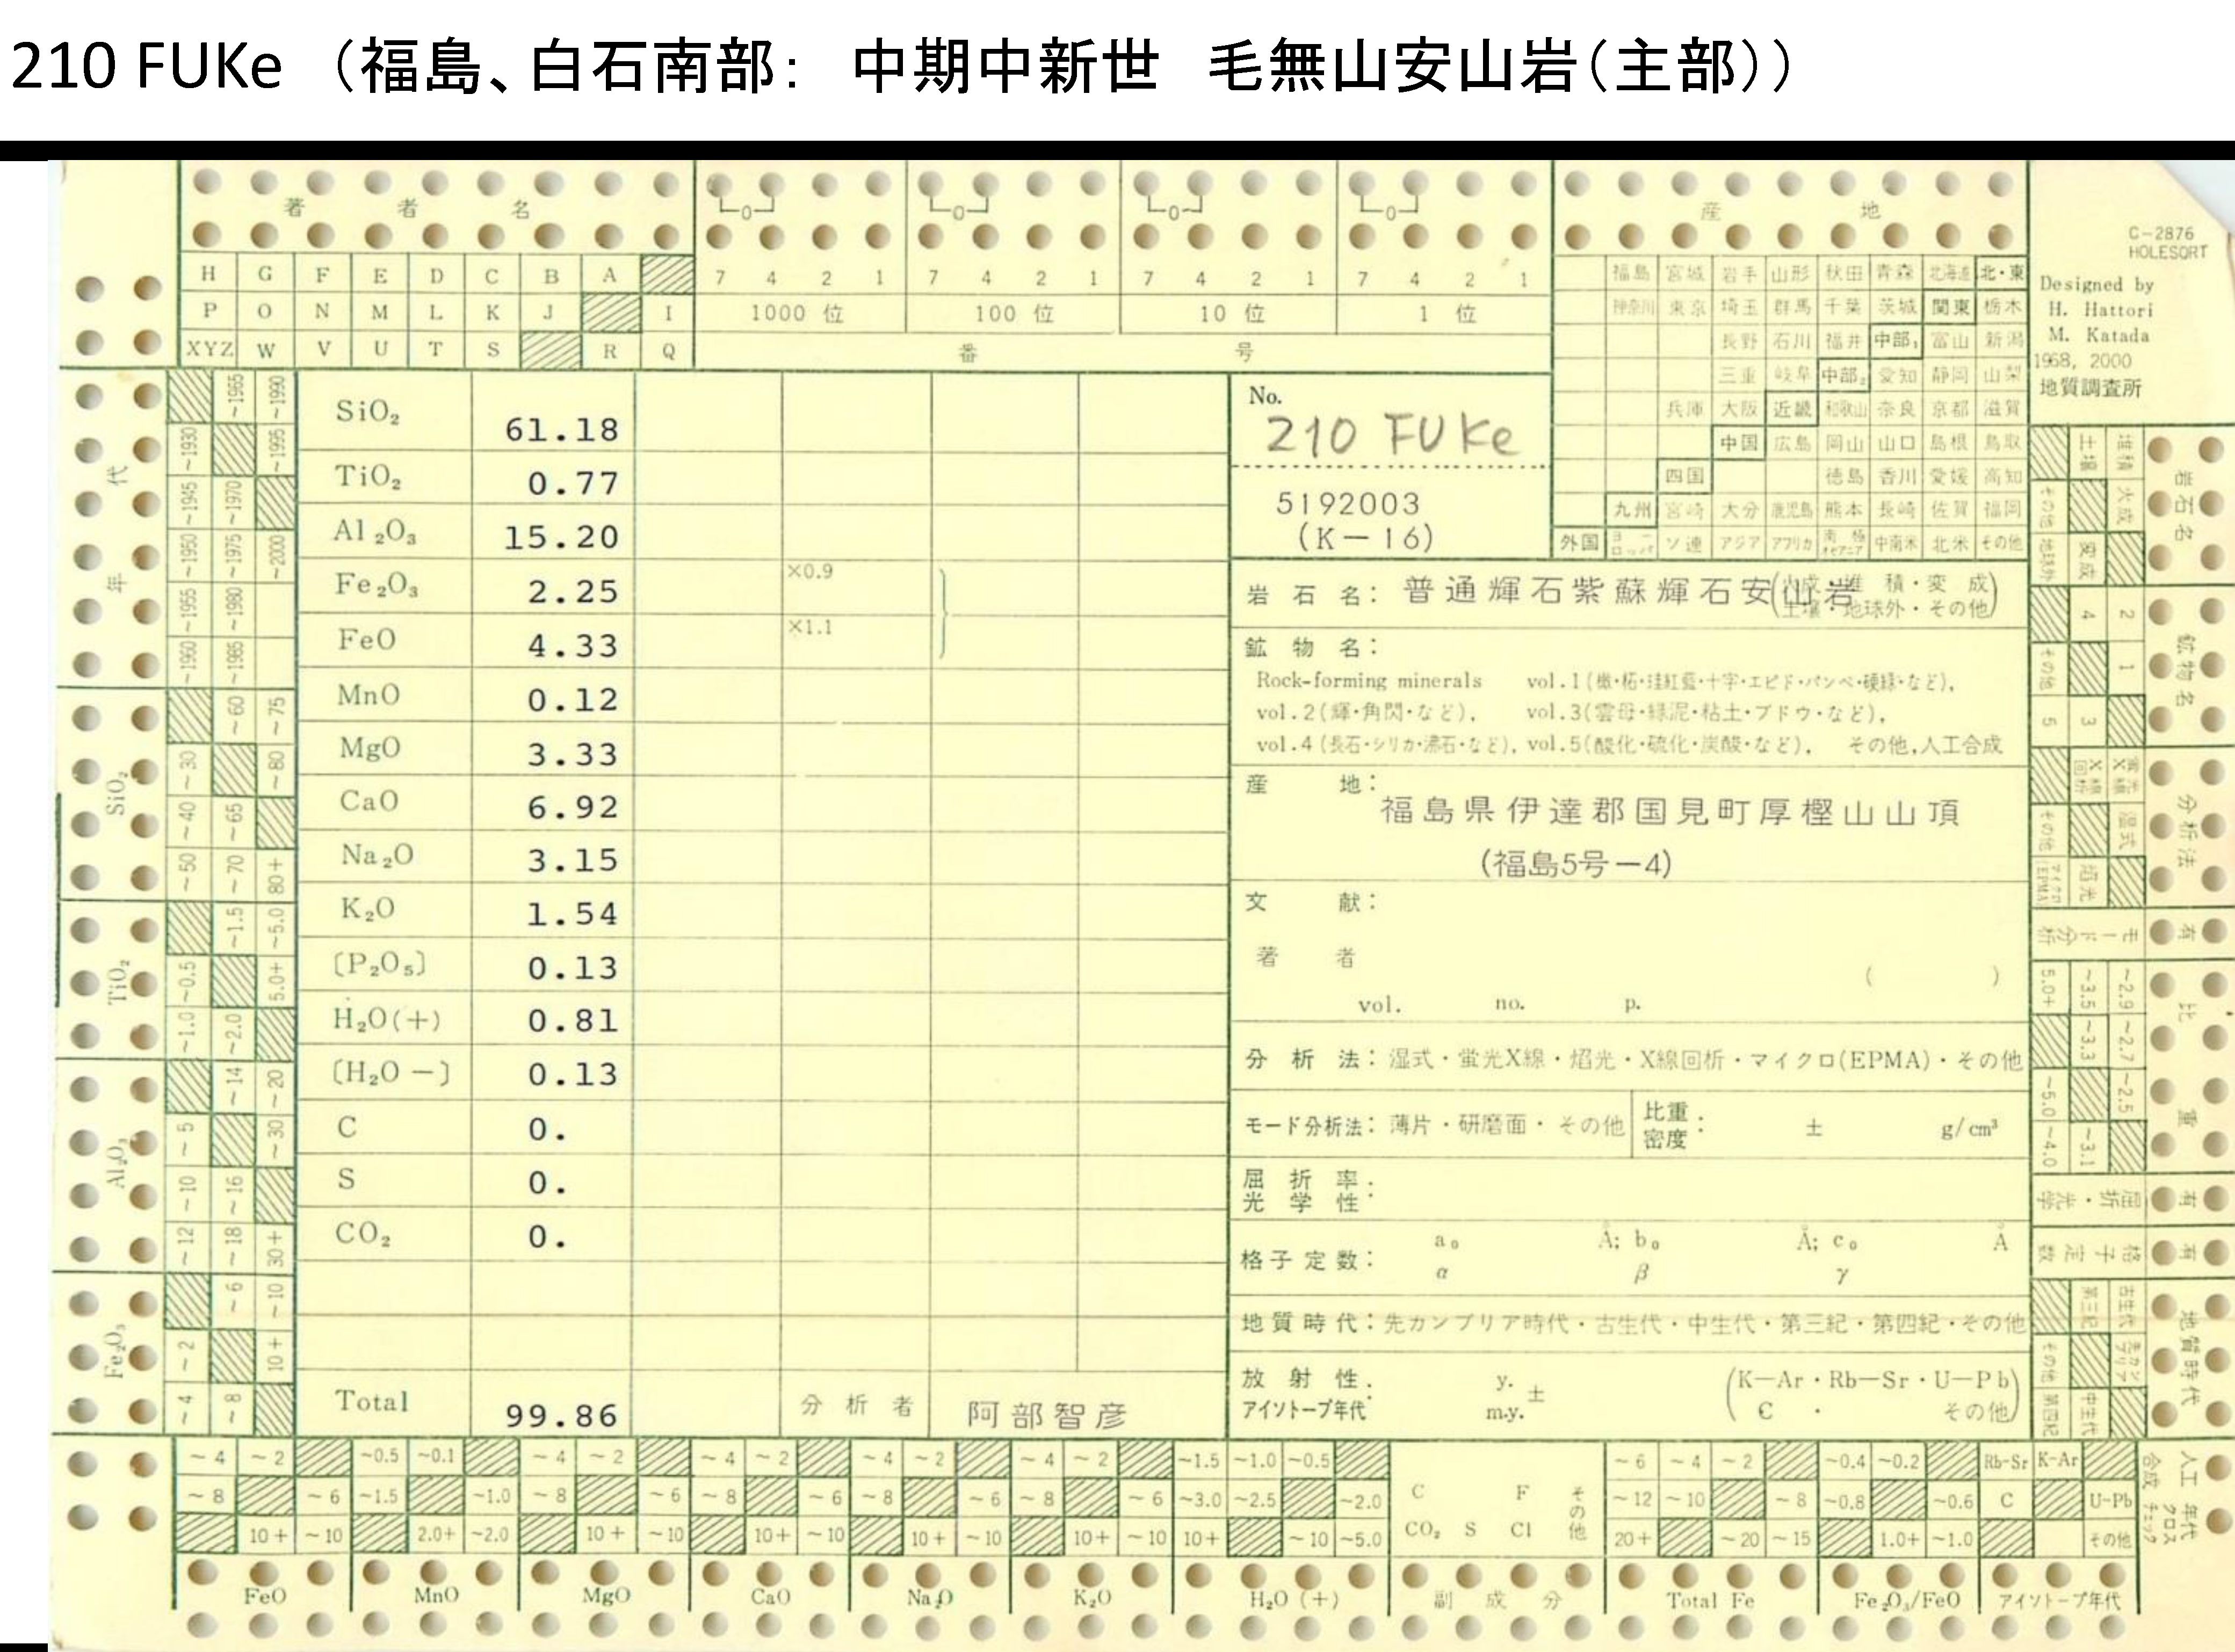 210 FUKe （福島、白石南部：　中期中新世　毛無山安山岩（主部））
著 者 名
産 地
C-2876
HOLESORT
Designed by
H. Hattori
M. Katada
1968, 2000
地質調査所
H G F E D C B A
P O N M L K J I
XYZ W V U T S R Q
0 0 0 0
7 4 2 1 7 4 2 1 7 4 2 1 7 4 2 1
1000 位 100 位 10 位 1 位
番 号
福島 宮城 岩手 山形 秋田 青森 北海道 北・東
神奈川 東京 埼玉 群馬 千葉 茨城 関東 栃木
長野 石川 福井 中部₁ 富山 新潟
三重 岐阜 中部₂ 愛知 静岡 山梨
兵庫 大阪 近畿 和歌山 奈良 京都 滋賀
中国 広島 岡山 山口 島根 鳥取
四国 徳島 香川 愛媛 高知
九州 宮崎 大分 鹿児島 熊本 長崎 佐賀 福岡
外国 ヨーロッパ ソ連 アジア アフリカ 南極オセアニア 中南米 北米 その他
No.
210 FUKe
5192003
(K-16)
SiO₂ 61.18
TiO₂ 0.77
Al₂O₃ 15.20
Fe₂O₃ 2.25 ×0.9
FeO 4.33 ×1.1
MnO 0.12
MgO 3.33
CaO 6.92
Na₂O 3.15
K₂O 1.54
〔P₂O₅〕 0.13
H₂O(+) 0.81
〔H₂O −〕 0.13
C 0.
S 0.
CO₂ 0.
Total 99.86 分析者 阿部智彦
岩石名： 普通輝石紫蘇輝石安山岩
(火成・堆積・変成
土壌・地球外・その他)
鉱物名：
Rock-forming minerals vol.1(橄・柘・珪紅藍・十字・エピド・パンペ・硬緑・など),
vol.2(輝・角閃・など), vol.3(雲母・緑泥・粘土・ブドウ・など),
vol.4(長石・シリカ・沸石・など), vol.5(酸化・硫化・炭酸・など), その他,人工合成
産 地：
福島県伊達郡国見町厚樫山山頂
(福島5号-4)
文 献：
著 者
( )
vol. no. p.
分析法：湿式・蛍光X線・焰光・X線回析・マイクロ(EPMA)・その他
モード分析法：薄片・研磨面・その他 比重密度： ± g/cm³
屈折率・
光学性：
格子定数： a₀ Å; b₀ Å; c₀ Å
α β γ
地質時代：先カンブリア時代・古生代・中生代・第三紀・第四紀・その他
放射性・ y. ± (K—Ar・Rb—Sr・U—Pb
アイソトープ年代 m.y. C ・ その他)
年 代
~1965 ~1990
~1930 ~1995
~1945 ~1970
~1950 ~1975 ~2000
~1955 ~1980
~1960 ~1985
SiO₂
~60 ~75
~30 ~80
~40 ~65
~50 ~70 80+
TiO₂
~1.5 ~5.0
~0.5 5.0+
~1.0 ~2.0
Al₂O₃
~14 ~20
~5 ~30
~10 ~16
~12 ~18 30+
Fe₂O₃
~6 ~10
~2 10+
~4 ~8
岩石名
土壌 堆積
その他 火成
地球外 変成
鉱物名
4 2
その他 1
5 3
分析法
X線回析 蛍光X線
その他 湿式
マイクロ(EPMA) 焰光
モード分析 有
比重
5.0+ ~3.5 ~2.9
~3.3 ~2.7
~5.0 ~2.5
~4.0 ~3.1
屈折・光学 有
格子定数 有
地質時代
第三紀 古生代
その他 先カンブリア
第四紀 中生代
~4 ~2 ~0.5 ~0.1 ~4 ~2 ~4 ~2 ~4 ~2 ~4 ~2 ~1.5 ~1.0 ~0.5 ~6 ~4 ~2 ~0.4 ~0.2 Rb-Sr K-Ar
~8 ~6 ~1.5 ~1.0 ~8 ~6 ~8 ~6 ~8 ~6 ~8 ~6 ~3.0 ~2.5 ~2.0 C F その他 ~12 ~10 ~8 ~0.8 ~0.6 C U-Pb
10+ ~10 2.0+ ~2.0 10+ ~10 10+ ~10 10+ ~10 10+ ~10 10+ ~10 ~5.0 CO₂ S Cl 20+ ~20 ~15 1.0+ ~1.0 その他
人工合成 年代クロスチェック
FeO MnO MgO CaO Na₂O K₂O H₂O(+) 副成分 Total Fe Fe₂O₃/FeO アイソトープ年代